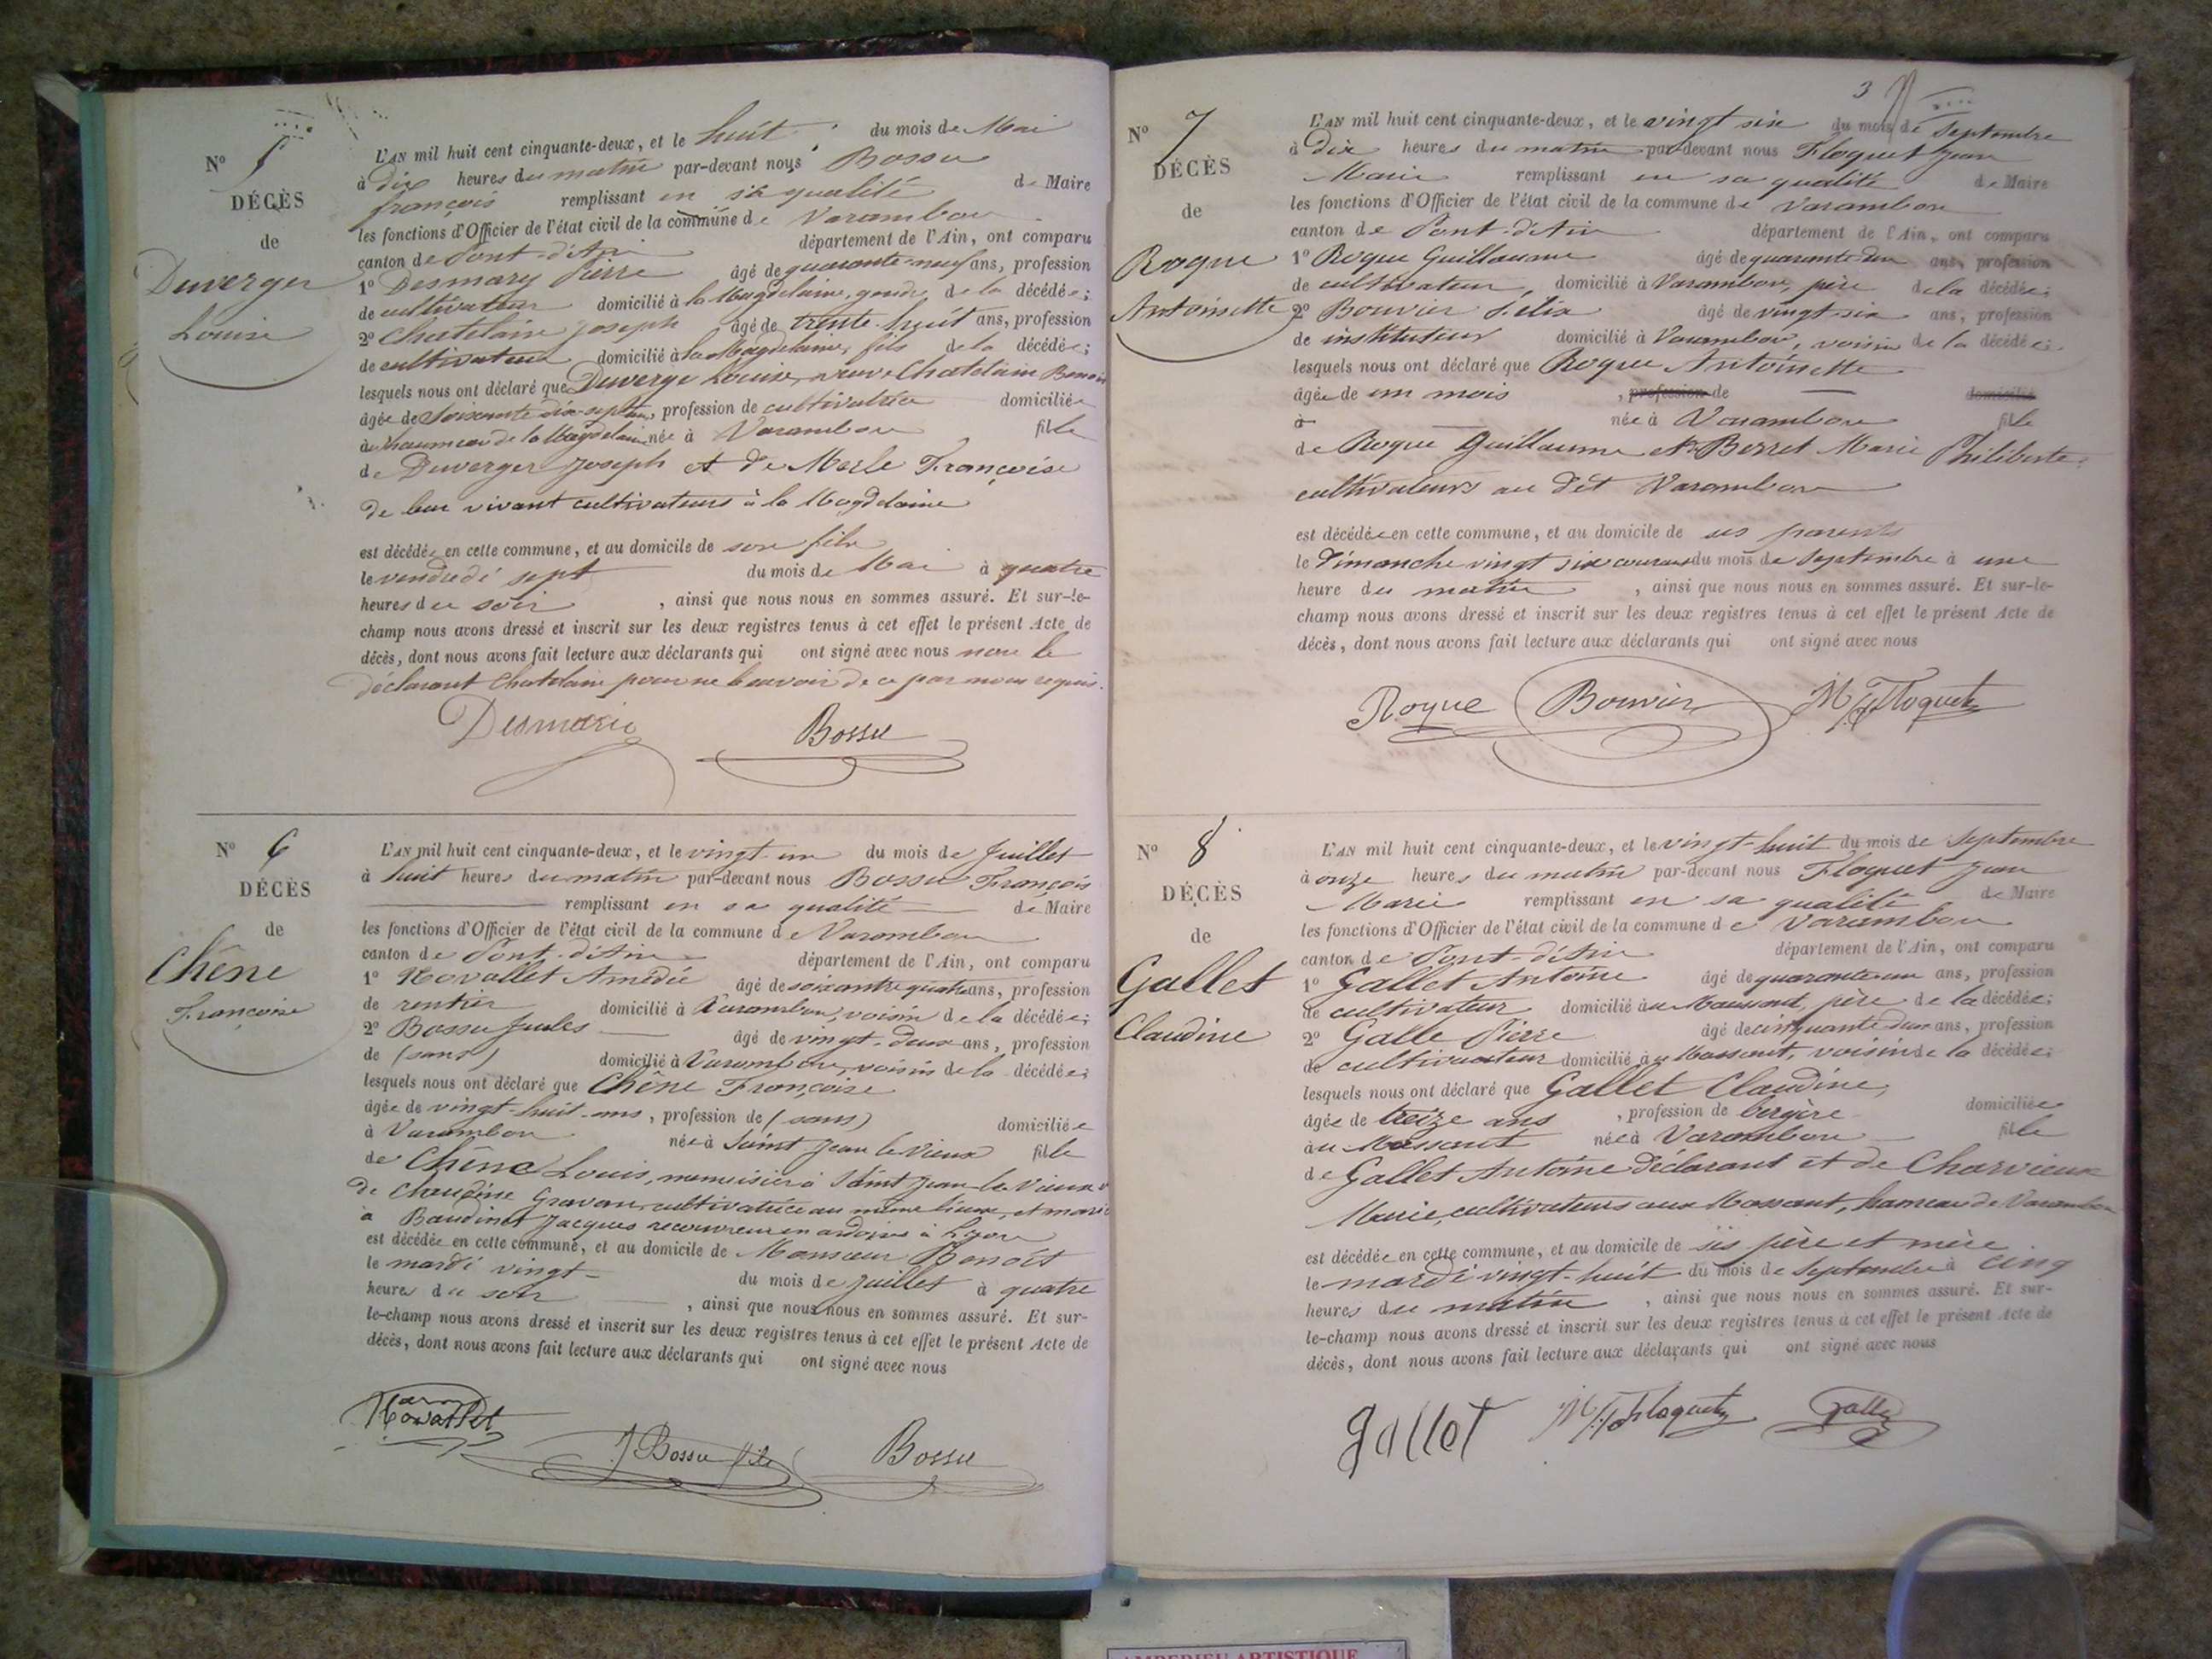 N° 5
DÉCÈS
de
Duverger
Louise
L'AN mil huit cent cinquante-deux, et le huit du mois de Mai
à dix heures du matin par-devant nous Bossu
françois remplissant en sa qualité de Maire
les fonctions d'Officier de l'état civil de la commune de Varambon
canton de Pont-d'Ain département de l'Ain, ont comparu
1° Desmary Pierre âgé de quarante-neuf ans, profession
de cultivateur domicilié à la Magdelaine, gendre de la décédée;
2° Chatelain joseph âgé de trente-huit ans, profession
de cultivateur domicilié à la Magdelaine, fils de la décédée;
lesquels nous ont déclaré que Duverge Louise, veuve Chatelain Benoit
âgée de Soixante dix-sept ans, profession de cultivatrice domiciliée
au hameau de la Magdelaine née à Varambon fille
de Duverger Joseph et de Merle Françoise
de leur vivant cultivateurs à la Magdelaine
est décédée en cette commune, et au domicile de son fils
le vendredi sept du mois de Mai à quatre
heures du soir , ainsi que nous nous en sommes assuré. Et sur-le-
champ nous avons dressé et inscrit sur les deux registres tenus à cet effet le présent Acte de
décès, dont nous avons fait lecture aux déclarants qui ont signé avec nous non le
déclarant Chatelain pour ne le savoir de ce par nous requis.
Desmaris Bossu
N° 6
DÉCÈS
de
Chêne
Françoise
L'AN mil huit cent cinquante-deux, et le vingt-un du mois de Juillet
à huit heures du matin par-devant nous Bossu François
remplissant en sa qualité de Maire
les fonctions d'Officier de l'état civil de la commune de Varambon
canton de Pont-d'Ain département de l'Ain, ont comparu
1° Novallet Amédée âgé de soixante quatre ans, profession
de rentier domicilié à Varambon, voisin de la décédée;
2° Bossu Jules âgé de vingt-deux ans, profession
de (sans) domicilié à Varambon, voisin de la décédée;
lesquels nous ont déclaré que Chêne Françoise
âgée de vingt-huit-ans, profession de (sans) domiciliée
à Varambon née à Saint Jean le Vieux fille
de Chêne Louis, menuisier à Saint Jean-le-Vieux et
de Claudine Gravau, cultivatrice au même lieu, et mariée
à Baudinet Jacques recouvreur en ardoises à Lyon
est décédée en cette commune, et au domicile de Monsieur Benoît
le mardi vingt du mois de Juillet à quatre
heures du soir , ainsi que nous nous en sommes assuré. Et sur-
le-champ nous avons dressé et inscrit sur les deux registres tenus à cet effet le présent Acte de
décès, dont nous avons fait lecture aux déclarants qui ont signé avec nous
Novallet J Bossu fils Bossu
3
N° 7
DÉCÈS
de
Roque
Antoinette
L'AN mil huit cent cinquante-deux, et le vingt six du mois de Septembre
à Dix heures du matin par-devant nous Floquet Jean
Marie remplissant en sa qualité de Maire
les fonctions d'Officier de l'état civil de la commune de Varambon
canton de Pont-d'Ain département de l'Ain, ont comparu
1° Roque Guillaume âgé de quarante-un ans, profession
de cultivateur, domicilié à Varambon, père de la décédée;
2° Bouvier Félix âgé de vingt six ans, profession
de instituteur domicilié à Varambon, voisin de la décédée;
lesquels nous ont déclaré que Roque Antoinette
âgée de un mois , profession de domicilié
à née à Varambon fille
de Roque Guillaume et Berret Marie Philiberte,
cultivateurs au dit Varambon
est décédée en cette commune, et au domicile de ses parents
le Dimanche vingt six courant du mois de Septembre à une
heure du matin , ainsi que nous nous en sommes assuré. Et sur-le-
champ nous avons dressé et inscrit sur les deux registres tenus à cet effet le présent Acte de
décès, dont nous avons fait lecture aux déclarants qui ont signé avec nous
Roque Bouvier Floquet
N° 8
DÉCÈS
de
Gallet
Claudine
L'AN mil huit cent cinquante-deux, et le vingt-huit du mois de Septembre
à onze heures du matin par-devant nous Floquet Jean
Marie remplissant en sa qualité de Maire
les fonctions d'Officier de l'état civil de la commune de Varambon
canton de Pont-d'Ain département de l'Ain, ont comparu
1° Gallet Antoine âgé de quarante un ans, profession
de cultivateur domicilié au Massant, père de la décédée;
2° Galle Pierre âgé de cinquante-deux ans, profession
de cultivateur domicilié au Massant, voisin de la décédée;
lesquels nous ont déclaré que Gallet Claudine,
âgée de treize ans , profession de bergère domiciliée
au Massant née à Varambon fille
de Gallet Antoine déclarant et de Charvieux
Marie, cultivateurs aux Massant, hameau de Varambon
est décédée en cette commune, et au domicile de ses père et mère
le mardi vingt-huit du mois de Septembre à cinq
heures du matin , ainsi que nous nous en sommes assuré. Et sur-
le-champ nous avons dressé et inscrit sur les deux registres tenus à cet effet le présent Acte de
décès, dont nous avons fait lecture aux déclarants qui ont signé avec nous
gallet Floquet Galle
AMBERIEU ARTISTIQUE